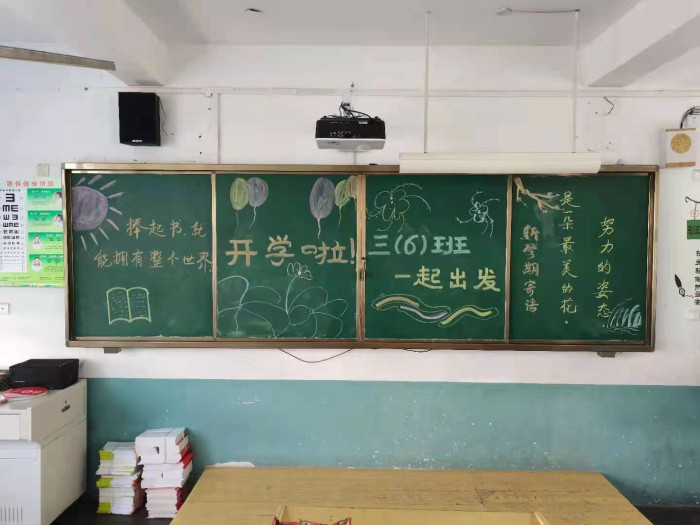 捧起书,就
能拥有整个世界
开学啦!
三(6)班
一起出发
新学期寄语
努力的姿态
是一朵最美的花。